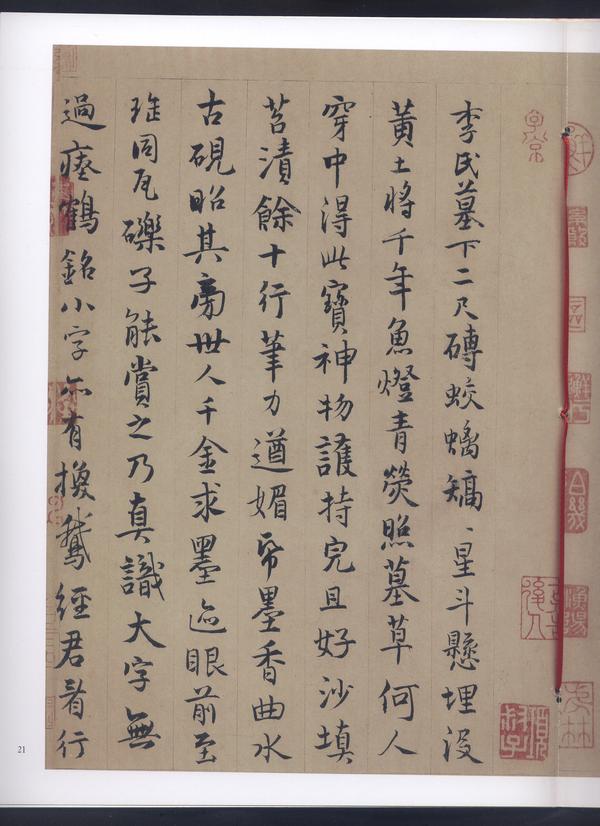 李氏墓下二尺磚蛟螭矯〻星斗懸埋没
黃土將千年魚燈青熒照墓草何人
穿中得此寶神物護持完且好沙填
苔漬餘十行筆力遒媚帋墨香曲水
古硯昭其旁世人千金求墨迹眼前至
珤同瓦礫子能賞之乃真識大字無
過瘞鶴銘小字亦有換鵝經君看行
子京
21